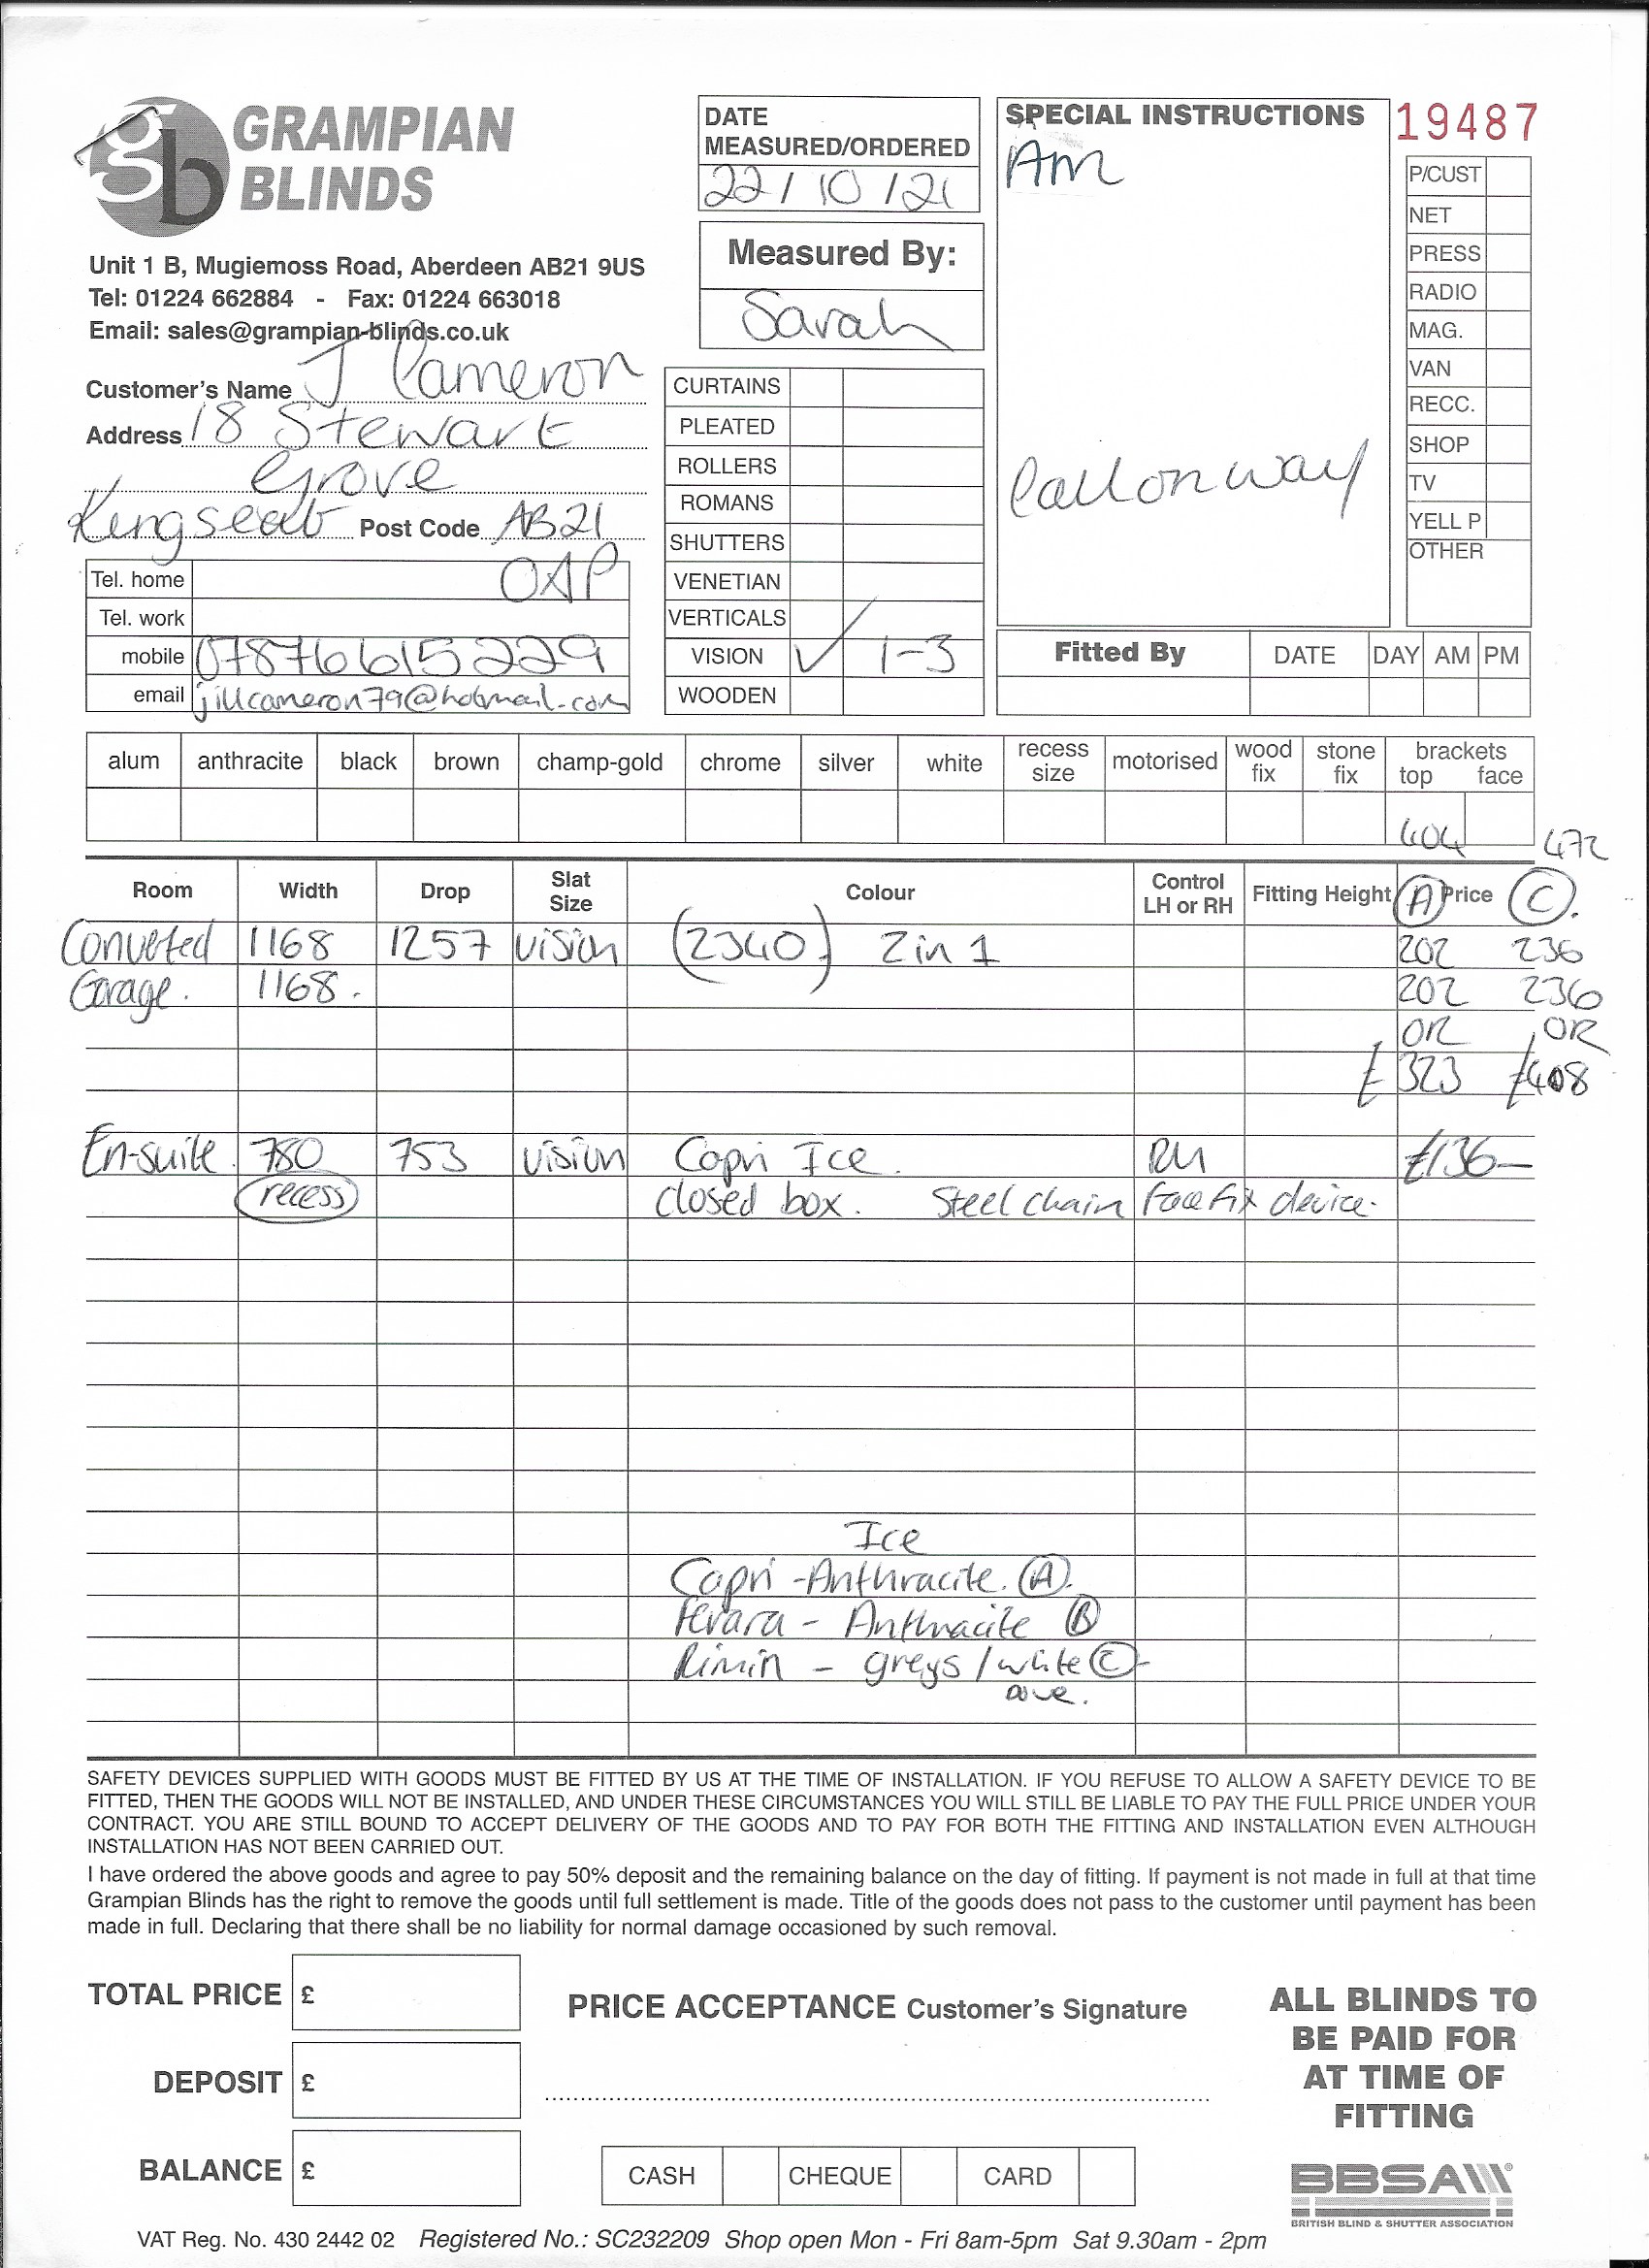 gb GRAMPIAN BLINDS
Unit 1 B, Mugiemoss Road, Aberdeen AB21 9US
Tel: 01224 662884 - Fax: 01224 663018
Email: sales@grampian-blinds.co.uk
DATE MEASURED/ORDERED
22/10/21
Measured By:
Sarah
SPECIAL INSTRUCTIONS
AM
Call on way
19487
P/CUST
NET
PRESS
RADIO
MAG.
VAN
RECC.
SHOP
TV
YELL P
OTHER
Customer's Name J Cameron
Address 18 Stewart
Grove
Kingseat Post Code AB21
0AP
Tel. home
Tel. work
mobile 07876615229
email jillcameron79@hotmail.com
CURTAINS
PLEATED
ROLLERS
ROMANS
SHUTTERS
VENETIAN
VERTICALS
VISION ✓ 1-3
WOODEN
Fitted By DATE DAY AM PM
alum anthracite black brown champ-gold chrome silver white recess size motorised wood fix stone fix brackets top face
404 472
Room Width Drop Slat Size Colour Control LH or RH Fitting Height (A) Price (C).
Converted 1168 1257 vision (2340) 2 in 1 202 236
Garage. 1168. 202 236
OR OR
£323 £408
En-suite 780 753 vision Capri Ice. RH £136-
(recess) closed box. Steel chain face fix device.
Ice
Capri - Anthracite. (A).
Ferara - Anthracite (B)
Rimin - greys / white (C)
Dove.
SAFETY DEVICES SUPPLIED WITH GOODS MUST BE FITTED BY US AT THE TIME OF INSTALLATION. IF YOU REFUSE TO ALLOW A SAFETY DEVICE TO BE
FITTED, THEN THE GOODS WILL NOT BE INSTALLED, AND UNDER THESE CIRCUMSTANCES YOU WILL STILL BE LIABLE TO PAY THE FULL PRICE UNDER YOUR
CONTRACT. YOU ARE STILL BOUND TO ACCEPT DELIVERY OF THE GOODS AND TO PAY FOR BOTH THE FITTING AND INSTALLATION EVEN ALTHOUGH
INSTALLATION HAS NOT BEEN CARRIED OUT.
I have ordered the above goods and agree to pay 50% deposit and the remaining balance on the day of fitting. If payment is not made in full at that time
Grampian Blinds has the right to remove the goods until full settlement is made. Title of the goods does not pass to the customer until payment has been
made in full. Declaring that there shall be no liability for normal damage occasioned by such removal.
TOTAL PRICE £
DEPOSIT £
BALANCE £
PRICE ACCEPTANCE Customer's Signature
CASH CHEQUE CARD
ALL BLINDS TO
BE PAID FOR
AT TIME OF
FITTING
BBSA
BRITISH BLIND & SHUTTER ASSOCIATION
VAT Reg. No. 430 2442 02 Registered No.: SC232209 Shop open Mon - Fri 8am-5pm Sat 9.30am - 2pm